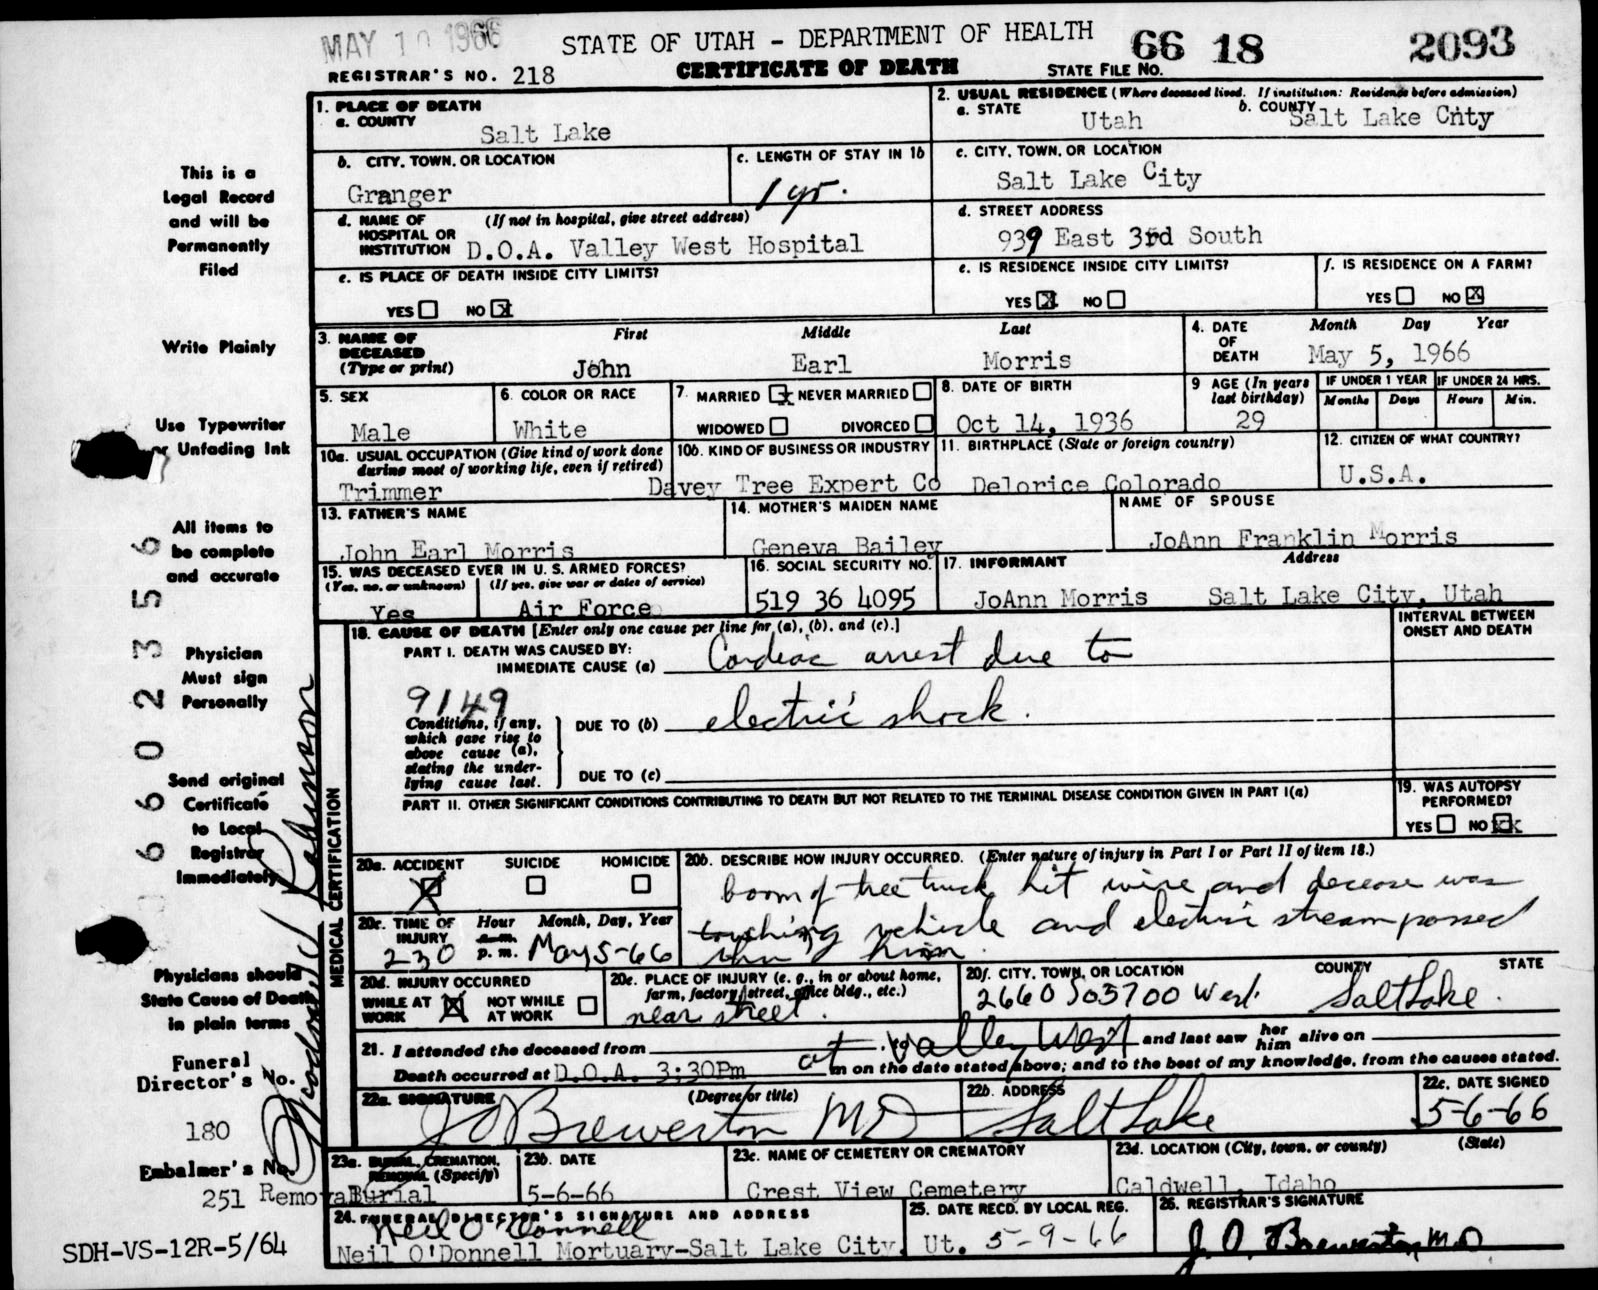 MAY 10 1966
STATE OF UTAH - DEPARTMENT OF HEALTH 66 18 2093
REGISTRAR'S NO. 218 CERTIFICATE OF DEATH STATE FILE NO.
1. PLACE OF DEATH
a. COUNTY
Salt Lake
2. USUAL RESIDENCE (Where deceased lived. If institution: Residence before admission)
a. STATE
Utah
b. COUNTY
Salt Lake Cnty
b. CITY, TOWN, OR LOCATION
Granger
c. LENGTH OF STAY IN 1b
1 yr.
c. CITY, TOWN, OR LOCATION
Salt Lake City
d. NAME OF HOSPITAL OR INSTITUTION (If not in hospital, give street address)
D.O.A. Valley West Hospital
d. STREET ADDRESS
939 East 3rd South
e. IS PLACE OF DEATH INSIDE CITY LIMITS?
YES NO X
e. IS RESIDENCE INSIDE CITY LIMITS?
YES X NO
f. IS RESIDENCE ON A FARM?
YES NO X
3. NAME OF DECEASED (Type or print)
First Middle Last
John Earl Morris
4. DATE OF DEATH
Month Day Year
May 5, 1966
5. SEX
Male
6. COLOR OR RACE
White
7. MARRIED X NEVER MARRIED
WIDOWED DIVORCED
8. DATE OF BIRTH
Oct 14, 1936
9 AGE (In years last birthday)
29
IF UNDER 1 YEAR
Months Days
IF UNDER 24 HRS.
Hours Min.
10a. USUAL OCCUPATION (Give kind of work done during most of working life, even if retired)
Trimmer
10b. KIND OF BUSINESS OR INDUSTRY
Davey Tree Expert Co
11. BIRTHPLACE (State or foreign country)
Delorice Colorado
12. CITIZEN OF WHAT COUNTRY?
U.S.A.
13. FATHER'S NAME
John Earl Morris
14. MOTHER'S MAIDEN NAME
Geneva Bailey
NAME OF SPOUSE
JoAnn Franklin Morris
15. WAS DECEASED EVER IN U. S. ARMED FORCES?
(Yes, no, or unknown) (If yes, give war or dates of service)
Yes Air Force
16. SOCIAL SECURITY NO.
519 36 4095
17. INFORMANT Address
JoAnn Morris Salt Lake City, Utah
MEDICAL CERTIFICATION
18. CAUSE OF DEATH [Enter only one cause per line for (a), (b), and (c).]
INTERVAL BETWEEN ONSET AND DEATH
PART I. DEATH WAS CAUSED BY:
IMMEDIATE CAUSE (a) Cardiac arrest due to
9149
Conditions, if any, which gave rise to above cause (a), stating the underlying cause last.
DUE TO (b) electric shock.
DUE TO (c)
PART II. OTHER SIGNIFICANT CONDITIONS CONTRIBUTING TO DEATH BUT NOT RELATED TO THE TERMINAL DISEASE CONDITION GIVEN IN PART I(a)
19. WAS AUTOPSY PERFORMED?
YES NO XX
20a. ACCIDENT SUICIDE HOMICIDE
X
20b. DESCRIBE HOW INJURY OCCURRED. (Enter nature of injury in Part I or Part II of item 18.)
boom of tree truck hit wire and decease was
touching vehicle and electric stream passed
thru him.
20c. TIME OF INJURY Hour Month, Day, Year
230 a.m. p.m. May 5-66
20d. INJURY OCCURRED
WHILE AT WORK X NOT WHILE AT WORK
20e. PLACE OF INJURY (e. g., in or about home, farm, factory, street, office bldg., etc.)
near street.
20f. CITY, TOWN, OR LOCATION COUNTY STATE
2660 So 3700 West. Salt Lake.
21. I attended the deceased from at Valley West and last saw her him alive on
Death occurred at D.O.A. 3:30Pm m on the date stated above; and to the best of my knowledge, from the causes stated.
22a. SIGNATURE (Degree or title)
J O Brewerton MD
22b. ADDRESS
Salt Lake
22c. DATE SIGNED
5-6-66
23a. BURIAL, CREMATION, REMOVAL (Specify)
Removal Burial
23b. DATE
5-6-66
23c. NAME OF CEMETERY OR CREMATORY
Crest View Cemetery
23d. LOCATION (City, town, or county) (State)
Caldwell, Idaho
24. FUNERAL DIRECTOR'S SIGNATURE AND ADDRESS
Neil O'Donnell
Neil O'Donnell Mortuary-Salt Lake City, Ut.
25. DATE RECD. BY LOCAL REG.
5-9-66
26. REGISTRAR'S SIGNATURE
J. O. Brewerton M.D
This is a
Legal Record
and will be
Permanently
Filed
Write Plainly
Use Typewriter
or Unfading Ink
All items to
be complete
and accurate
Physician
Must sign
Personally
Send original
Certificate
to Local
Registrar
Immediately
Physicians should
State Cause of Death
in plain terms
Funeral
Director's No.
180
Embalmer's No.
251
66023556
Robinson
SDH-VS-12R-5/64